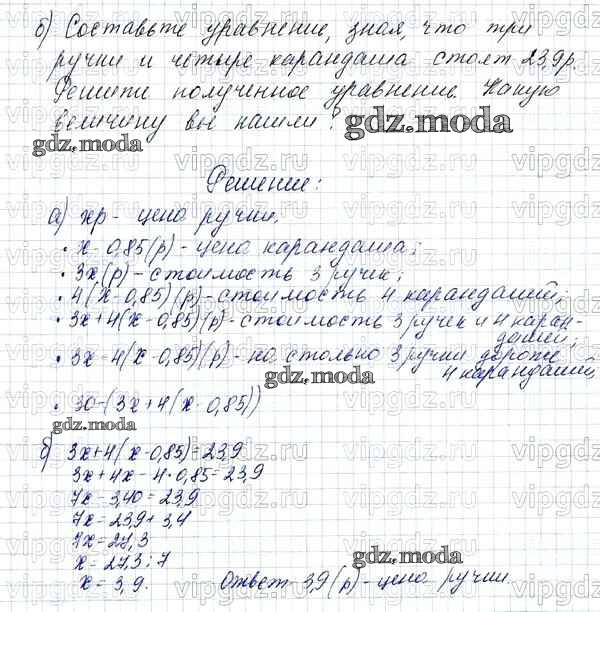 б) Составьте уравнение, зная, что три
ручки и четыре карандаша стоят 23,9 р.
Решити полученное уравнение. Какую
величину вы нашли?
gdz.moda
gdz.moda
Решение:
а) xр - цена ручки,
• x - 0,85(р) - цена карандаша;
• 3x(р) - стоимость 3 ручек;
• 4(x - 0,85)(р) - стоимость 4 карандашей;
• 3x + 4(x - 0,85)(р) - стоимость 3 ручек и 4 каран-
дашей;
• 3x - 4(x - 0,85)(р) - на столько 3 ручки дороже
4 карандашей
gdz.moda
• 30 - (3x + 4(x - 0,85))
gdz.moda
б) 3x + 4(x - 0,85) = 23,9
3x + 4x - 4·0,85 = 23,9
7x - 3,40 = 23,9
7x = 23,9 + 3,4
7x = 27,3
x = 27,3 : 7
gdz.moda
x = 3,9. Ответ 3,9(р) - цена ручки.
vipgdz.ru